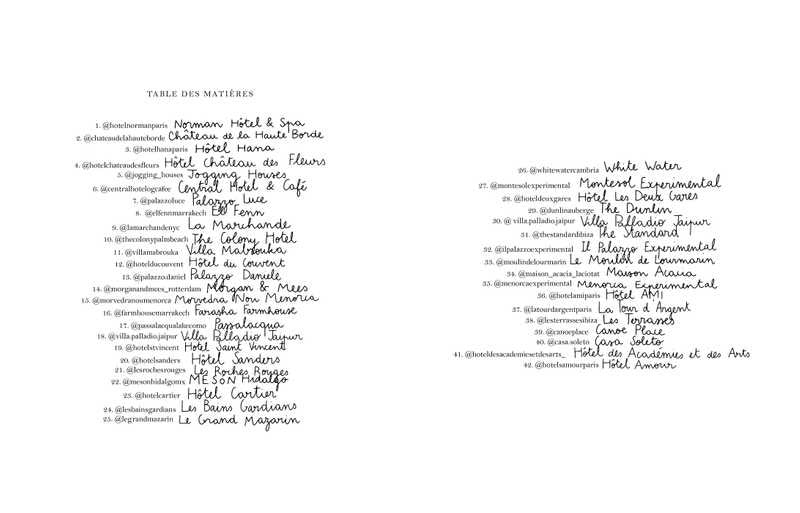 TABLE DES MATIÈRES
1. @hotelnormanparis Norman Hôtel & Spa
2. @chateaudelahauteborde Château de la Haute Borde
3. @hotelhanaparis Hôtel Hana
4. @hotelchateaudesfleurs Hôtel Château des Fleurs
5. @jogging_houses Jogging Houses
6. @centralhotelografee Central Hotel & Café
7. @palazzoluce Palazzo Luce
8. @elfennmarrakech El Fenn
9. @lamarchandenyc La Marchande
10. @thecolonypalmbeach The Colony Hotel
11. @villamabrouka Villa Mabrouka
12. @hotelducouvent Hôtel du Couvent
13. @palazzo.daniel Palazzo Daniele
14. @morganandmees_rotterdam Morgan & Mees
15. @morvedranoumenorca Morvedra Nou Menorca
16. @farmhousemarrakech Farasha Farmhouse
17. @passalacqualakecomo Passalacqua
18. @villa.palladio.jaipur Villa Palladio Jaipur
19. @hotelstvincent Hôtel Saint Vincent
20. @hotelsanders Hôtel Sanders
21. @lesrochesrouges Les Roches Rouges
22. @mesonhidalgoms MESON Hidalgo
23. @hotelcartier Hôtel Cartier
24. @lesbainsgardians Les Bains Gardians
25. @legrandmazarin Le Grand Mazarin
26. @whitewatercambria White Water
27. @montesolexperimental Montesol Experimental
28. @hoteldeuxgares Hôtel Les Deux Gares
29. @dunlinauberge The Dunlin
30. @ villa.palladio.jaipur Villa Palladio Jaipur
31. @thestandardibiza The Standard
32. @ilpalazzoexperimental Il Palazzo Experimental
33. @moulindelourmarin Le Moulin de Lourmarin
34. @maison_acacia_laciotat Maison Acacia
35. @menorcaexperimental Menorca Experimental
36. @hotelamiparis Hôtel AMI
37. @latourdargentparis La Tour d'Argent
38. @lesterrassesibiza Les Terrasses
39. @canoeplace Canoe Place
40. @casa.soleto Casa Soleto
41. @hoteldesacademiesetdesarts_ Hôtel des Académies et des Arts
42. @hotelsamourparis Hôtel Amour